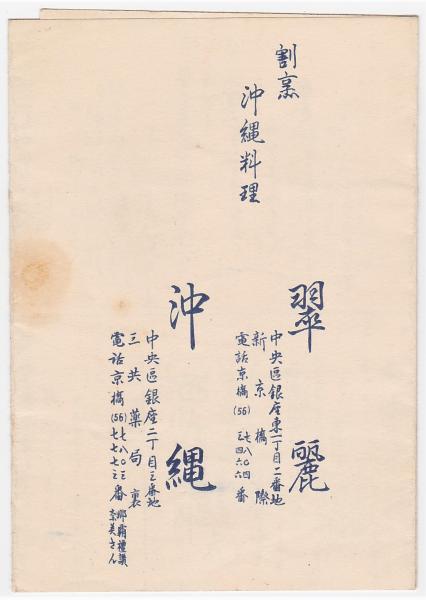 割烹
沖縄料理
翠麗
中央區銀座東一丁目二番地
新京橋際
電話京橋(56)
七八〇四
三四六六
番
沖縄
中央區銀座二丁目三番地
三共薬局裏
電話京橋(56)
七八〇三
七七七三
番
那覇禮讃
奈美さん